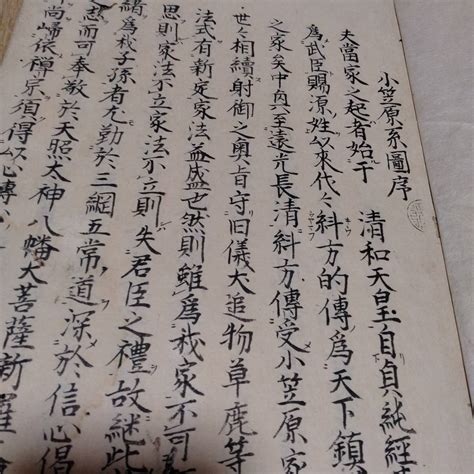 小笠原系圖序
夫當家之起者始于 清和天皇自貞純經
爲武臣賜源姓以來代々糾方的傳爲天下鎮
之家矣中内至遠光長清糾方傳受小笠原家
世々相續射御之奥旨守旧儀大追物草鹿等
法式有新定家法益盛也然則雖爲我家不可
思則家法不立家法不立則失君臣之禮故継此
爲我子孫者尤勤於三綱五常道深於信心偈
忠而可奉敬於天照太神八幡大菩薩新羅
尚歸依禅宗須得以心傳